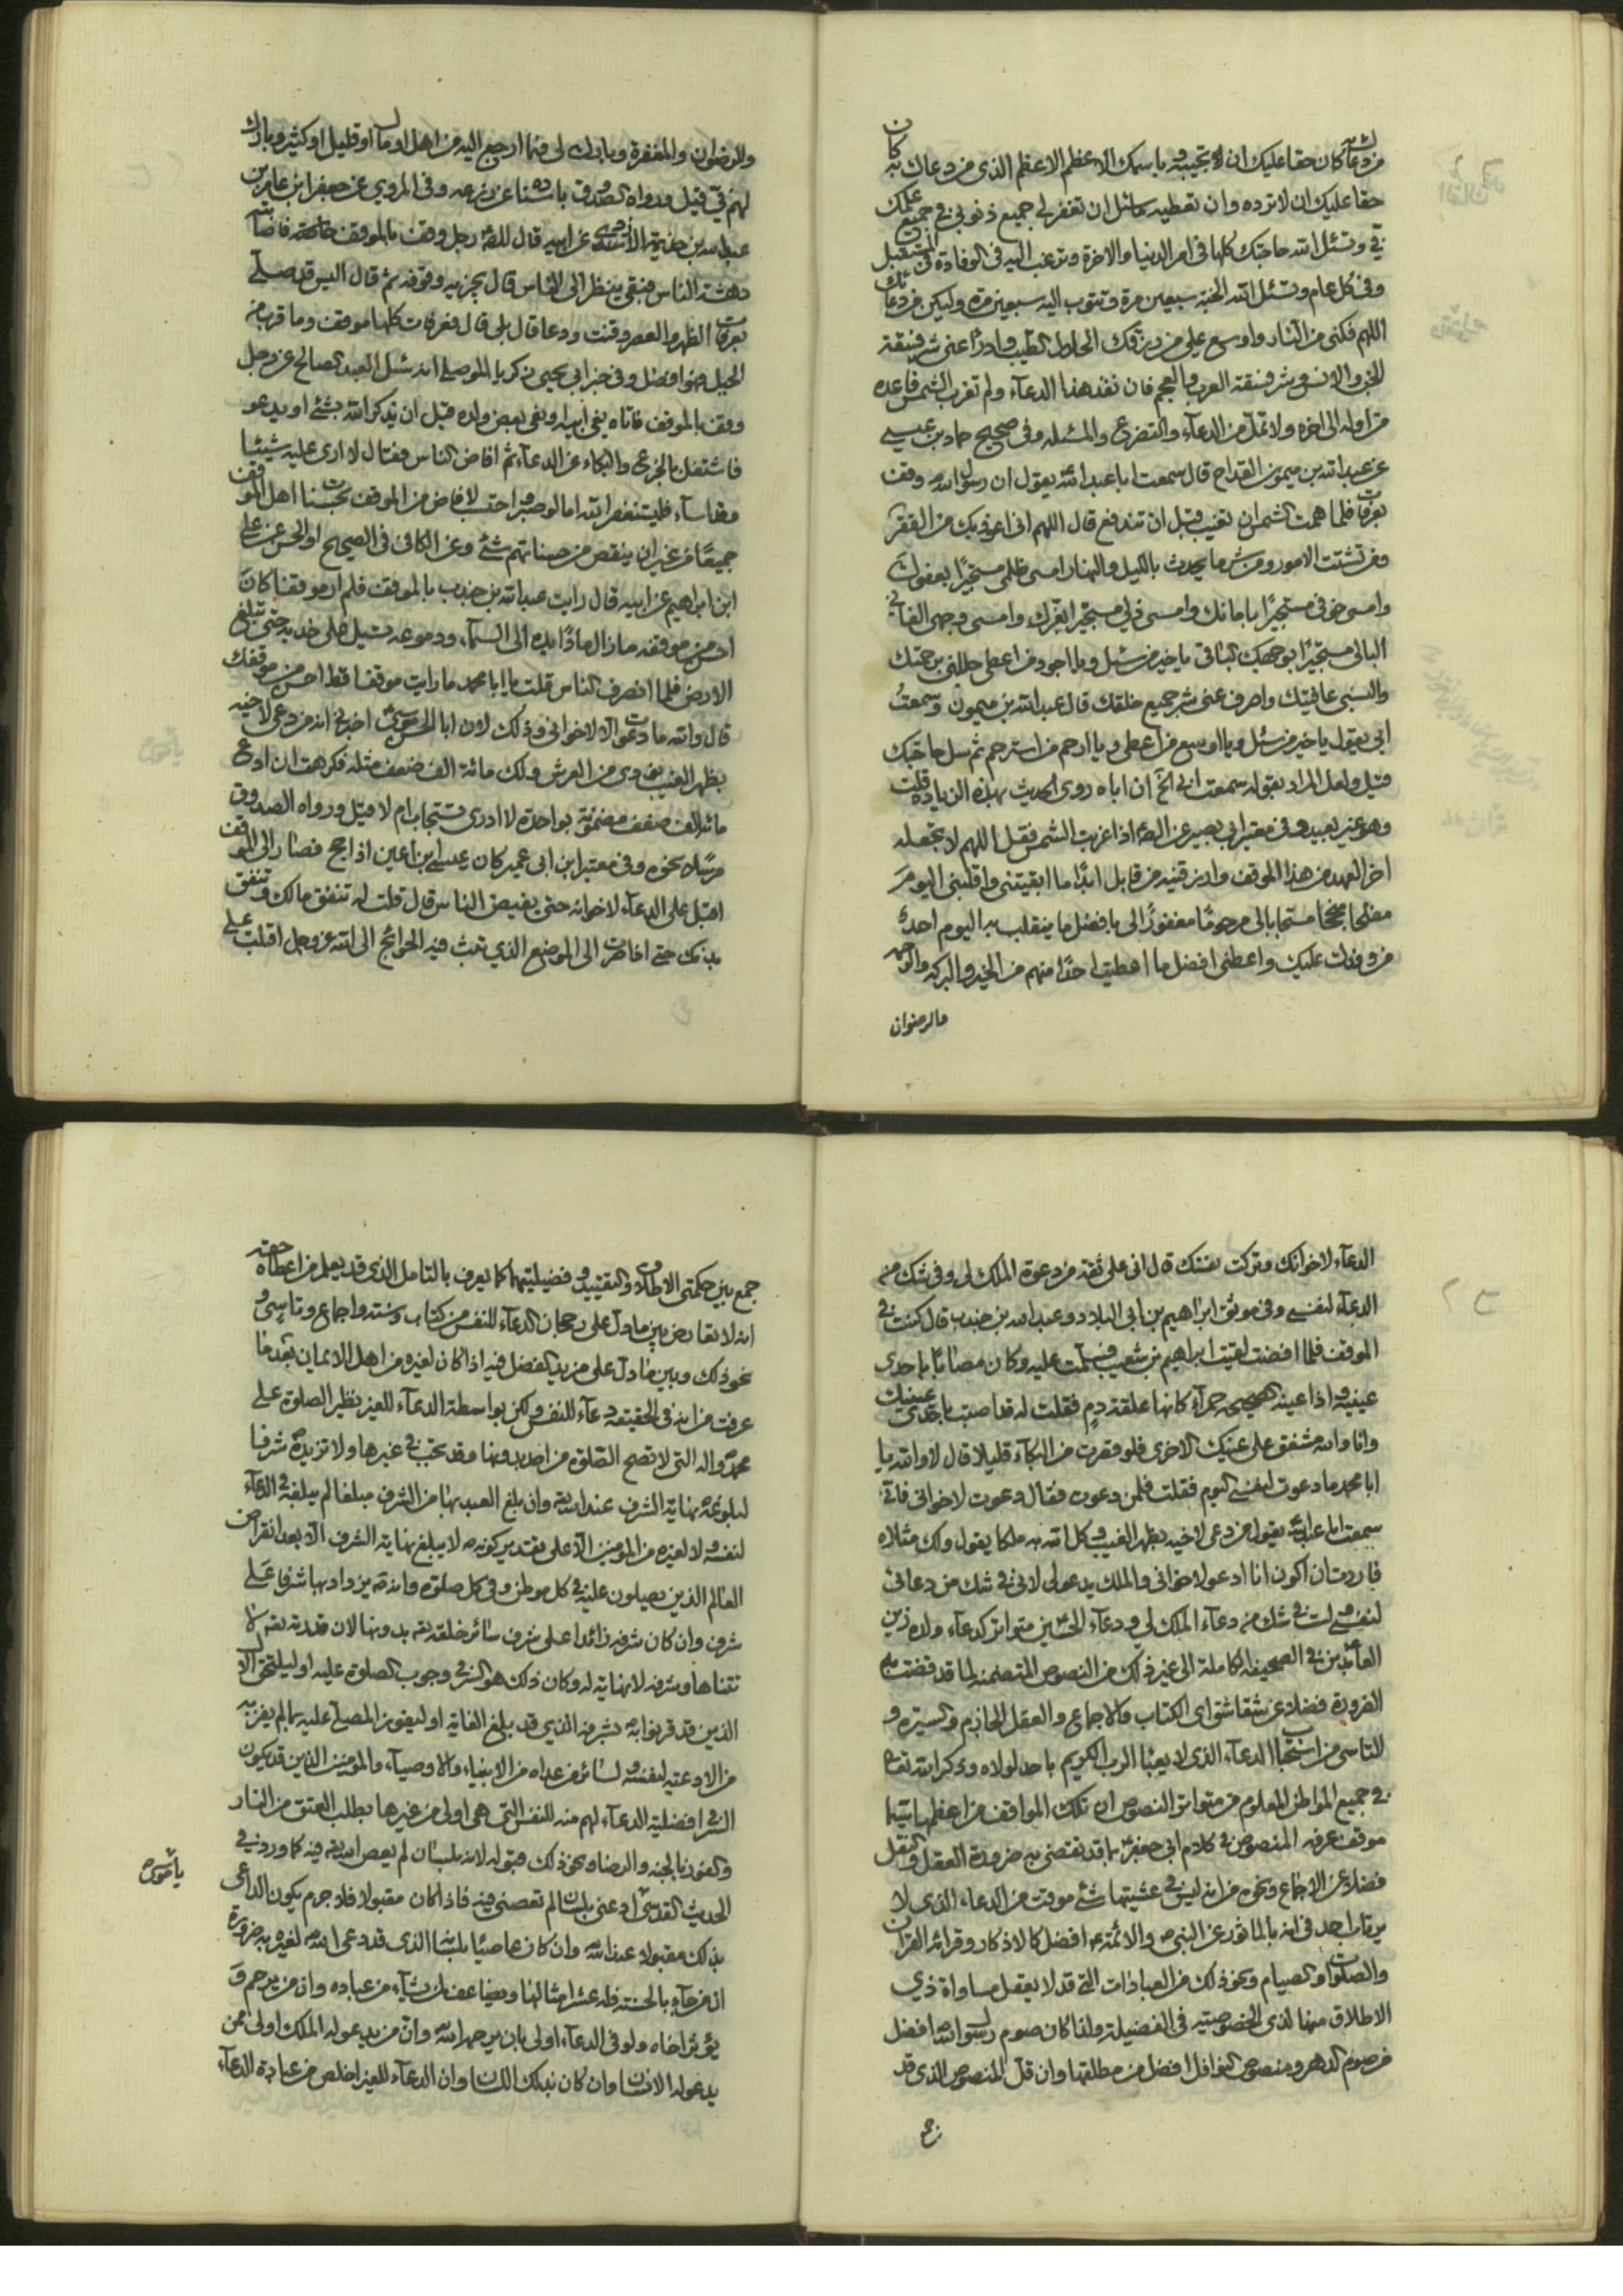 من دعاك به كان حقا عليك ان لا تخيبه و باسمك الاعظم الاعظم الذى من دعاك به كان
حقا عليك ان لا ترده وان تعطيه ما سئل ان تغفر لي جميع ذنوبي في جميع علمك
في وتسئل الله حاجتك كلها في امر الدنيا والاخرة وترغب اليه فى الوفادة فى المستقبل
وفى كل عام وتسئل الله الجنة سبعين مرة وتتوب اليه سبعين مرة وليكن من دعائك
اللهم فكنى من النار واوسع على من رزقك الحلال الطيب وادرأ عنى شر فسقة
الجن والانس وشر فسقة العرب والعجم فان نفد هذا الدعآء ولم تغرب الشمس فاعده
من اوله الى اخره ولا تمل من الدعآء والتضرع والمسئله وفى صحيح حماد بن عيسى
عن عبد الله بن ميمون القداح قال سمعت ابا عبد الله يقول ان رسول الله وقف
بعرفات فلما همت الشمس ان تغيب قبل ان تندفع قال اللهم انى اعوذ بك من الفقر
ومن تشتت الامور ومن شر ما يحدث بالليل والنهار امسى ظلمى مستجيرا بعفوك
وامسى خوفى مستجيرا بامانك وامسى ذلي مستجيرا بعزك وامسى وجهى الفانى
البالى مستجيرا بوجهك الباقى يا خير من سئل ويا اجود من اعطى جللنى برحمتك
والبسنى عافيتك واصرف عنى شر جميع خلقك قال عبد الله بن ميمون وسمعت
ابى يقول يا خير من سئل ويا اوسع من اعطى ويا ارحم من استرحم ثم سل حاجتك
قيل ولعل المراد بقوله سمعت ابى الخ ان اباه روى الحديث بهذه الزيادة قلت
وهو غير بعيد وفى معتبر ابى بصير عن الصـ اذا غربت الشمس فقل اللهم لا تجعله
اخر العهد من هذا الموقف وارزقنيه من قابل ابدا ما ابقيتنى واقلبنى اليوم
مفلحا منجحا مستجابا لى مرحوما مغفورا لى بافضل ما ينقلب به اليوم احد
من وفدك عليك واعطنى افضل ما اعطيت احدا منهم من الخير والبركه والرحمه
والرضوان
والرضوان والمغفرة وبارك لى فيما ارجع اليه من اهل او مال او قليل او كثير وبارك
لهم فى قيل ورواه الصدوق باسناده عن زرعه وفى المروي عن جعفر ابن عامر بن
عبد الله بن جذاعة الازدى عن ابيه قال للصـ رجل وقف بالموقف فاصابته
دهشة الناس فبقى ينظر الى الناس قال يجزيه وقوفه ثم قال اليس قد صلى
بعرفات الظهر والعصر وقنت ودعا قال بلى قال فعرفات كلها موقف وما قرب من
الجبل فهو افضل وفى خبر ابى يحيى زكريا الموصلى انه سئل العبد الصالح عن رجل
وقف بالموقف فاتاه نعى ابيه او نعى بعض ولده قبل ان يذكر الله بشئ او يدعو
فاشتغل بالجزع والبكاء عن الدعآء ثم افاض الناس فقال لا ارى عليه شيئا
وقد اسآء فليستغفر الله اما لو صبر واحتسب لافاض من الموقف بحسنات اهل الموقف
جميعا من غير ان ينقص من حسناتهم شئ وعن الكافى فى الصحيح او الحسن عن على
ابن ابراهيم عن ابيه قال رايت عبد الله بن جندب بالموقف فلم ار موقفا كان
احسن من موقفه ما زال مادا يده الى السمآء ودموعه تسيل على خديه حتى تبلغ
الارض فلما انصرف الناس قلت يا ابا محمد ما رايت موقفا قط احسن من موقفك
قال والله ما دعوت الا لاخوانى وذلك لان ابا الحسن موسى اخبرنى انه من دعى لاخيه
بظهر الغيب نودى من العرش ولك مائة الف ضعف مثله فكرهت ان ادع
مائة الف ضعف مضمونة بواحدة لا ادرى تستجاب ام لا قيل ورواه الصدوق
مرسلا نحوه وفى معتبر ابن ابى عمير كان عيسى ابن اعين اذا حج فصار الى الموقف
اقبل على الدعآء لاخوانه حتى يفيض الناس قال قلت له تنفق مالك وتتعب
بدنك حتى اذا صرت الى الموضع الذي تبث فيه الحوائج الى الله عز وجل اقبلت على
الدعآء لاخوانك وتركت نفسك قال انى على ثقة من دعوة الملك لى وفى شك من
الدعآء لنفسى وفى موثق ابراهيم بن ابى البلاد وعبد الله بن جندب قال كنت فى
الموقف فلما افضت لقيت ابراهيم بن شعيب فسلمت عليه وكان مصابا باحدى
عينيه واذا عينه الصحيحه حمرآء كانها علقة دم فقلت له قد اصبت باحدى عينيك
وانا والله مشفق على عينك الاخرى فلو قصرت من البكآء قليلا قال لا والله يا
ابا محمد ما دعوت لنفسى اليوم فقلت فلمن دعوت فقال دعوت لاخوانى فانى
سمعت ابا عبد الله يقول من دعى لاخيه بظهر الغيب وكل الله به ملكا يقول ولك مثلاه
فاردت ان اكون انا ادعو لاخوانى والملك يدعو لى لانى فى شك من دعائى
لنفسى ولست فى شك من دعآء الملك لي ودعآء الحسين متواتر كدعآء ولده زين
العابدين فى الصحيفه الكاملة الى غير ذلك من النصوص المتضمنه لما قد قضت به
الضرورة فضلا عن شقاشق اى الكتاب والاجماع والعقل الجازم والسيرة و
التاسى من استحباب الدعآء الذى لا يعبأ الرب الكريم باحد لولاه وذكر الله تعالى
فى جميع المواطن المعلوم من متواتر النصوص ان تلك المواقف من اعظمها سيما
موقف عرفه المنصوص فى كلام ابى جعفر بما قد تقضى به ضرورة العقل والنقل
فضلا عن الاجماع ونحوه من انه ليس فى عشيتها شئ موقت من الدعاء الذى لا
يرتاب احد فى انه بالماثور عن النبى والائمة افضل كالاذكار وقرائة القران
والصلوات والصيام ونحو ذلك من العبادات التى قد لا يعقل مساواة ذي
الاطلاق منها لذى الخصوصيه فى الفضيلة ولذا كان صوم رسول الله افضل
من صوم الدهر ومنصوص النوافل افضل من مطلقها وان قل المنصوص الذى قد
جمع بين حكمتى الاطلاق والتقييد وفضيلتيهما كما يعرف بالتامل الذى قد يعلم من اعطاه حقه
انه لا تعارض بين ما دل على رجحان الدعآء للنفس من كتاب وسنة واجماع وتاسى و
نحو ذلك وبين ما دل على مزيد الفضل فيه اذا كان لغيره من اهل الايمان بعد ما
عرفت من انه فى الحقيقه دعآء للنفس ولكن بواسطة الدعآء للغير نظير الصلوة على
محمد واله التى لا تصح الصلوة من احد بدونها وقد تجب فى غيرها ولا تزيده شرفا
لبلوغه نهاية الشرف عند الله وان بلغ العبد بها من الشرف مبلغا لم يبلغه فى الدعآء
لنفسه ولا لغيره من المؤمنين الا على تقدير كونه لا يبلغ نهاية الشرف الا بعد انقراض
العالم الذين يصلون عليه فى كل موطن وفى كل صلوة وانه يزداد بها شرفا على
شرف وان كان شرفه زائدا على شرف سائر خلقه بدونها لان قدرته تعالى لا
تتناها وشرفه لا نهاية له وكان ذلك هو السر فى وجوب الصلوة عليه او ليلتحق الال
الذين قد قرنوا به بشرفه الذي قد بلغ الغاية او ليفوز المصلى عليه بما لم يفز به
من الادعيه لنفسه ولسائر من عداه من الانبياء والاوصيآء والمؤمنين الذين قد يكون
السر فى افضلية الدعآء لهم منه للنفس التى هى اولى من غيرها بطلب العتق من النار
والفوز بالجنه والرضا ونحو ذلك قبوله لانه بلسان لم يعص الله فيه كما ورد فى
الحديث القدسى ادعنى بلسان لم تعصنى فيه فاذا كان مقبولا فلا جرم يكون الداعى
بذلك مقبولا عند الله وان كان عاصيا بلسانه الذى قد دعى الله لغيره به ضرورة
ان من جآء بالحسنه فله عشر امثالها ويضاعف لمن يشآء من عباده وان من يرحم و
يؤثر اخاه ولو فى الدعآء اولى بان يرحمه الله وان من يدعو له الملك اولى ممن
يدعو له الانسان وان كان بذلك اللسان وان الدعآء للغير اخلص من عبادة الدعآء
يا موسى